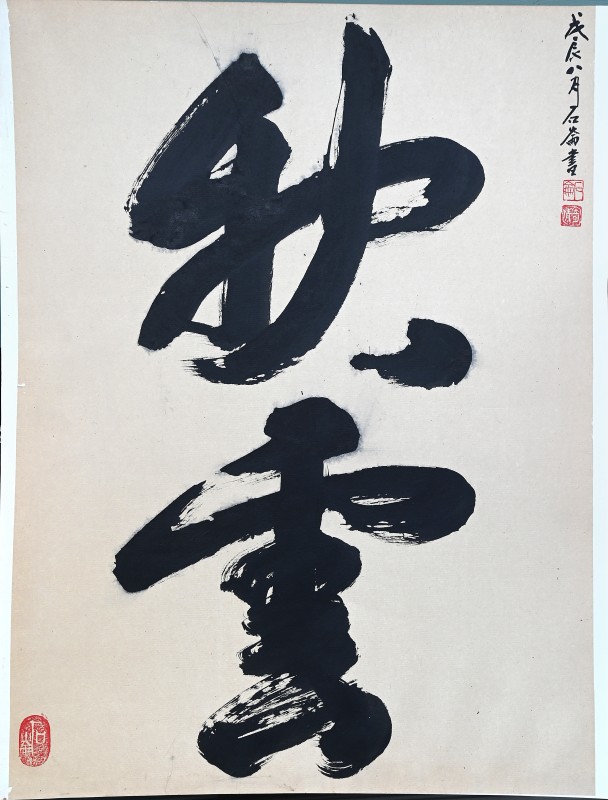 秋雲
戊辰八月石崙書